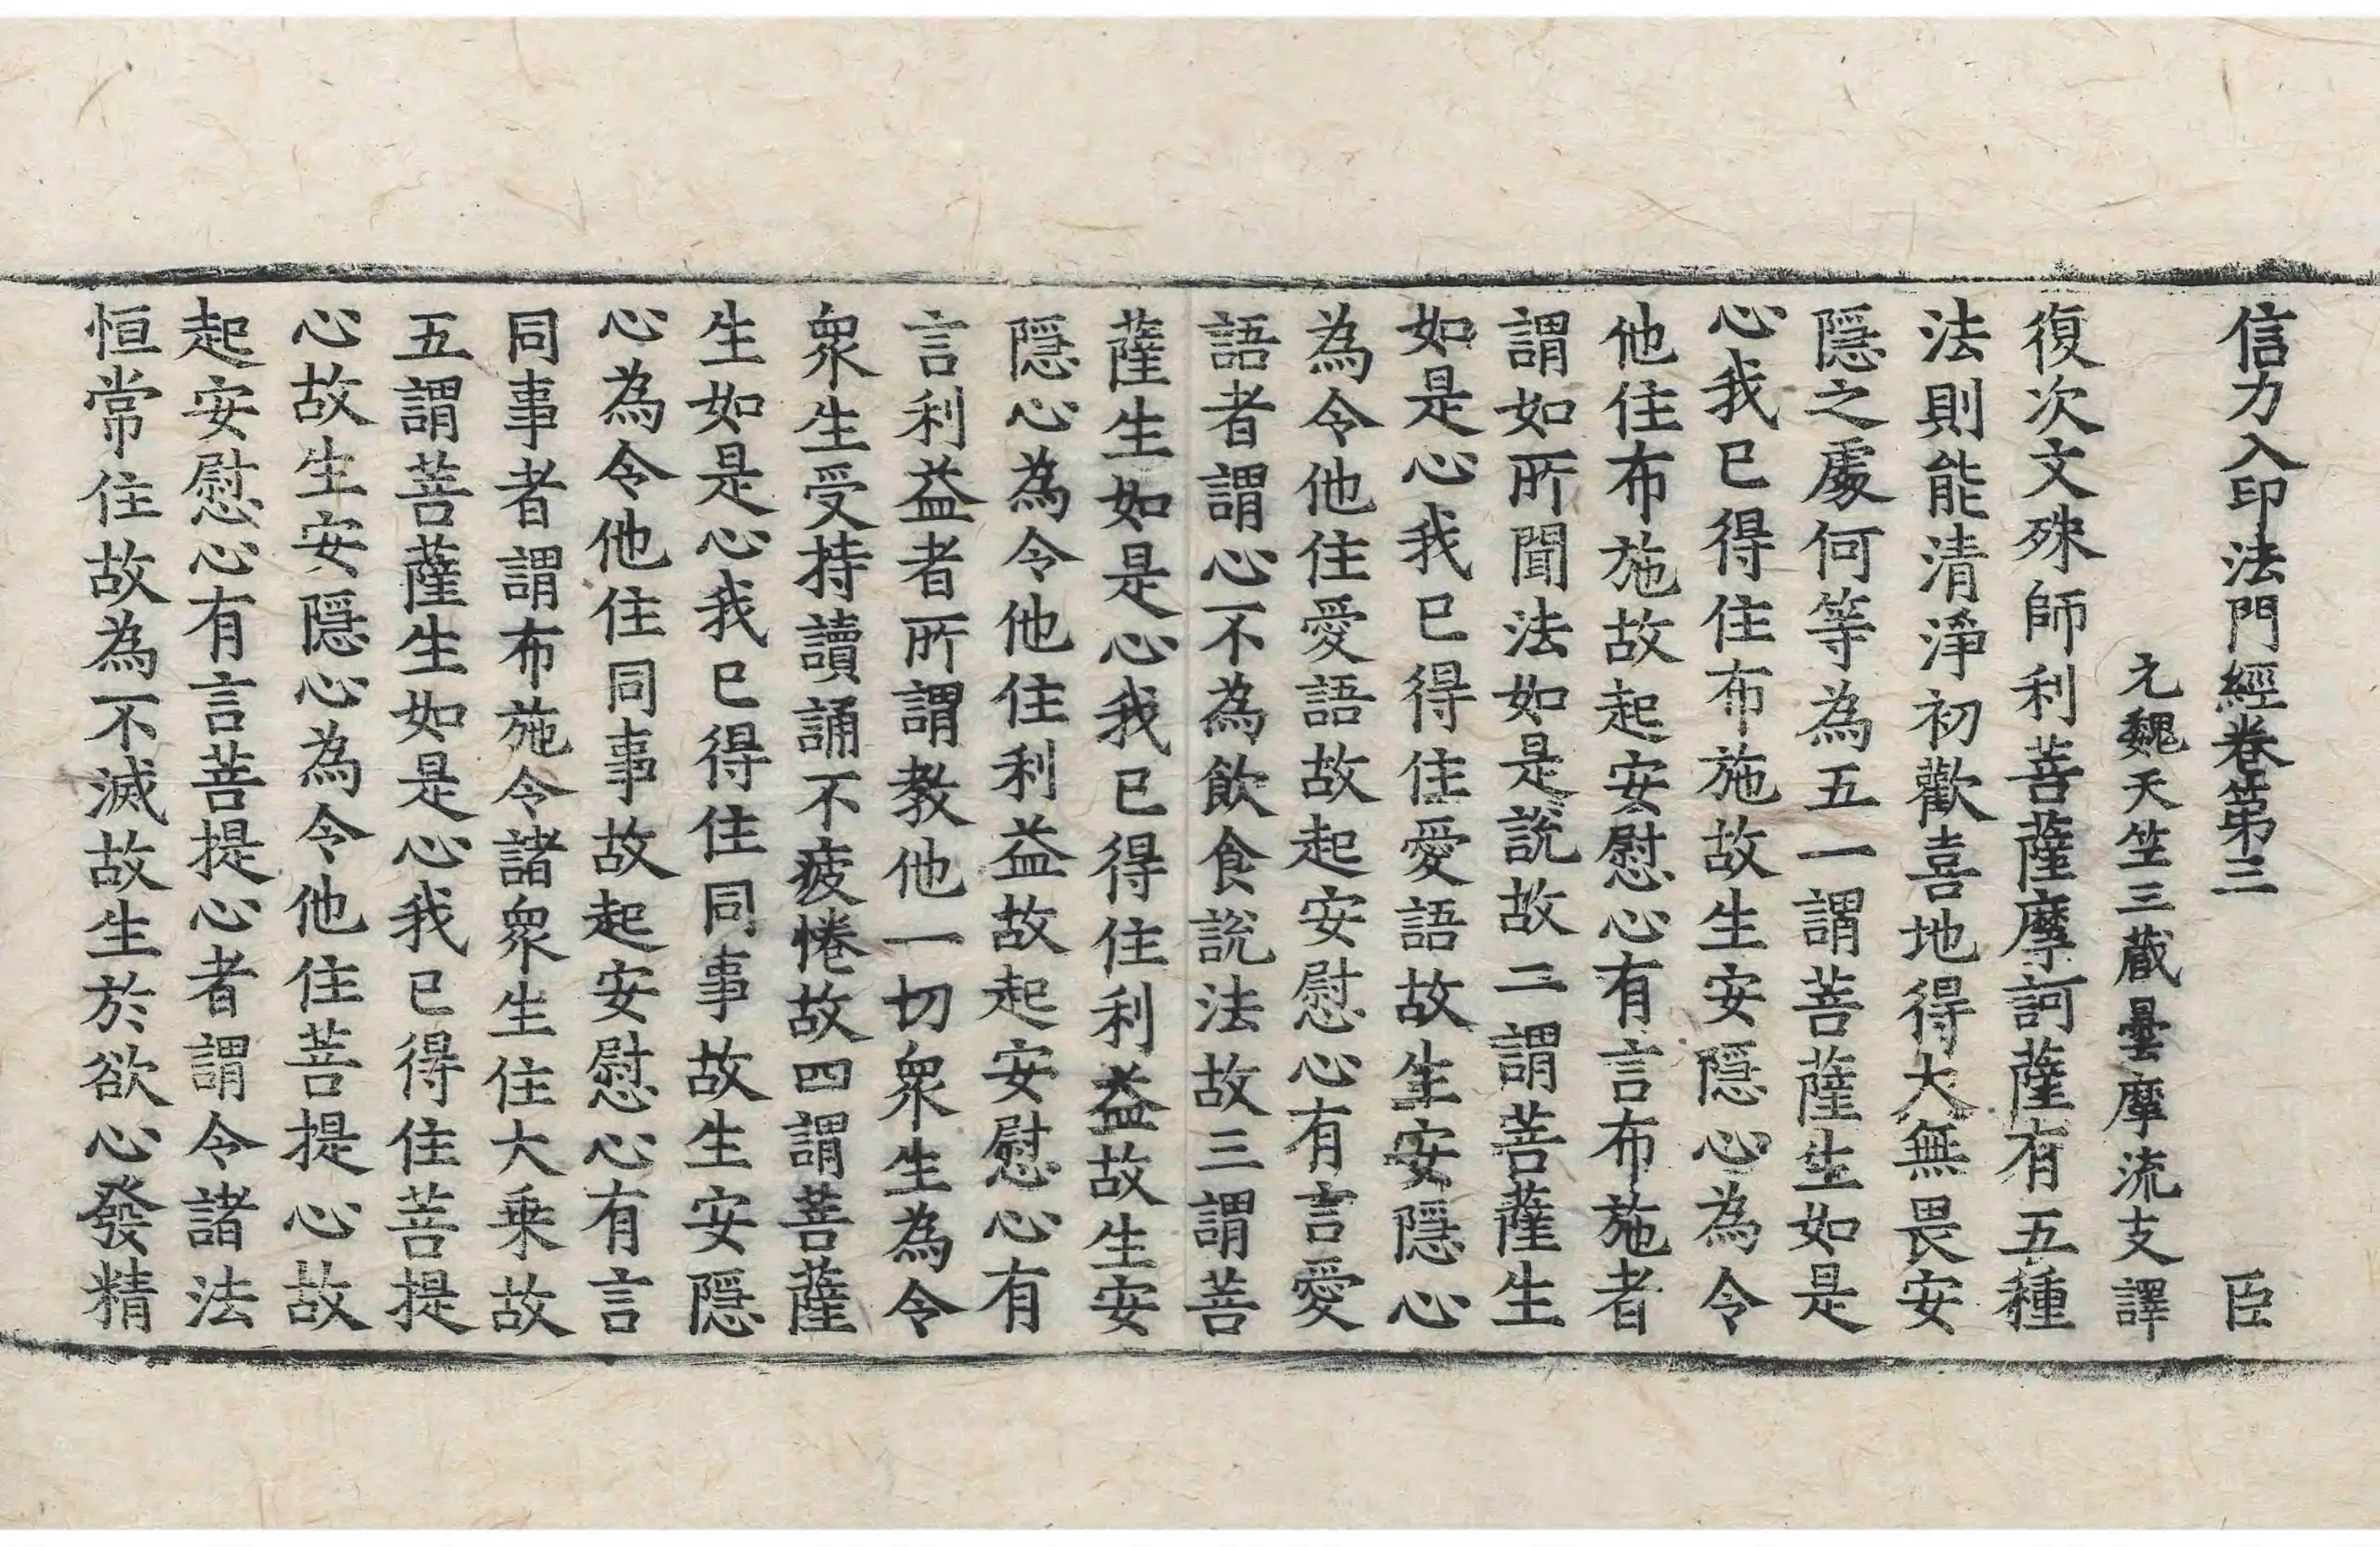 信力入印法門經卷第三 臣
元魏天竺三藏曇摩流支譯
復次文殊師利菩薩摩訶薩有五種
法則能清淨初歡喜地得大無畏安
隱之處何等為五一謂菩薩生如是
心我已得住布施故生安隱心為令
他住布施故起安慰心有言布施者
謂如所聞法如是說故二謂菩薩生
如是心我已得住愛語故生安隱心
為令他住愛語故起安慰心有言愛
語者謂心不為飲食說法故三謂菩
薩生如是心我已得住利益故生安
隱心為令他住利益故起安慰心有
言利益者所謂教他一切眾生為令
眾生受持讀誦不疲惓故四謂菩薩
生如是心我已得住同事故生安隱
心為令他住同事故起安慰心有言
同事者謂布施令諸眾生住大乘故
五謂菩薩生如是心我已得住菩提
心故生安隱心為令他住菩提心故
起安慰心有言菩提心者謂令諸法
恒常住故為不滅故生於欲心發精